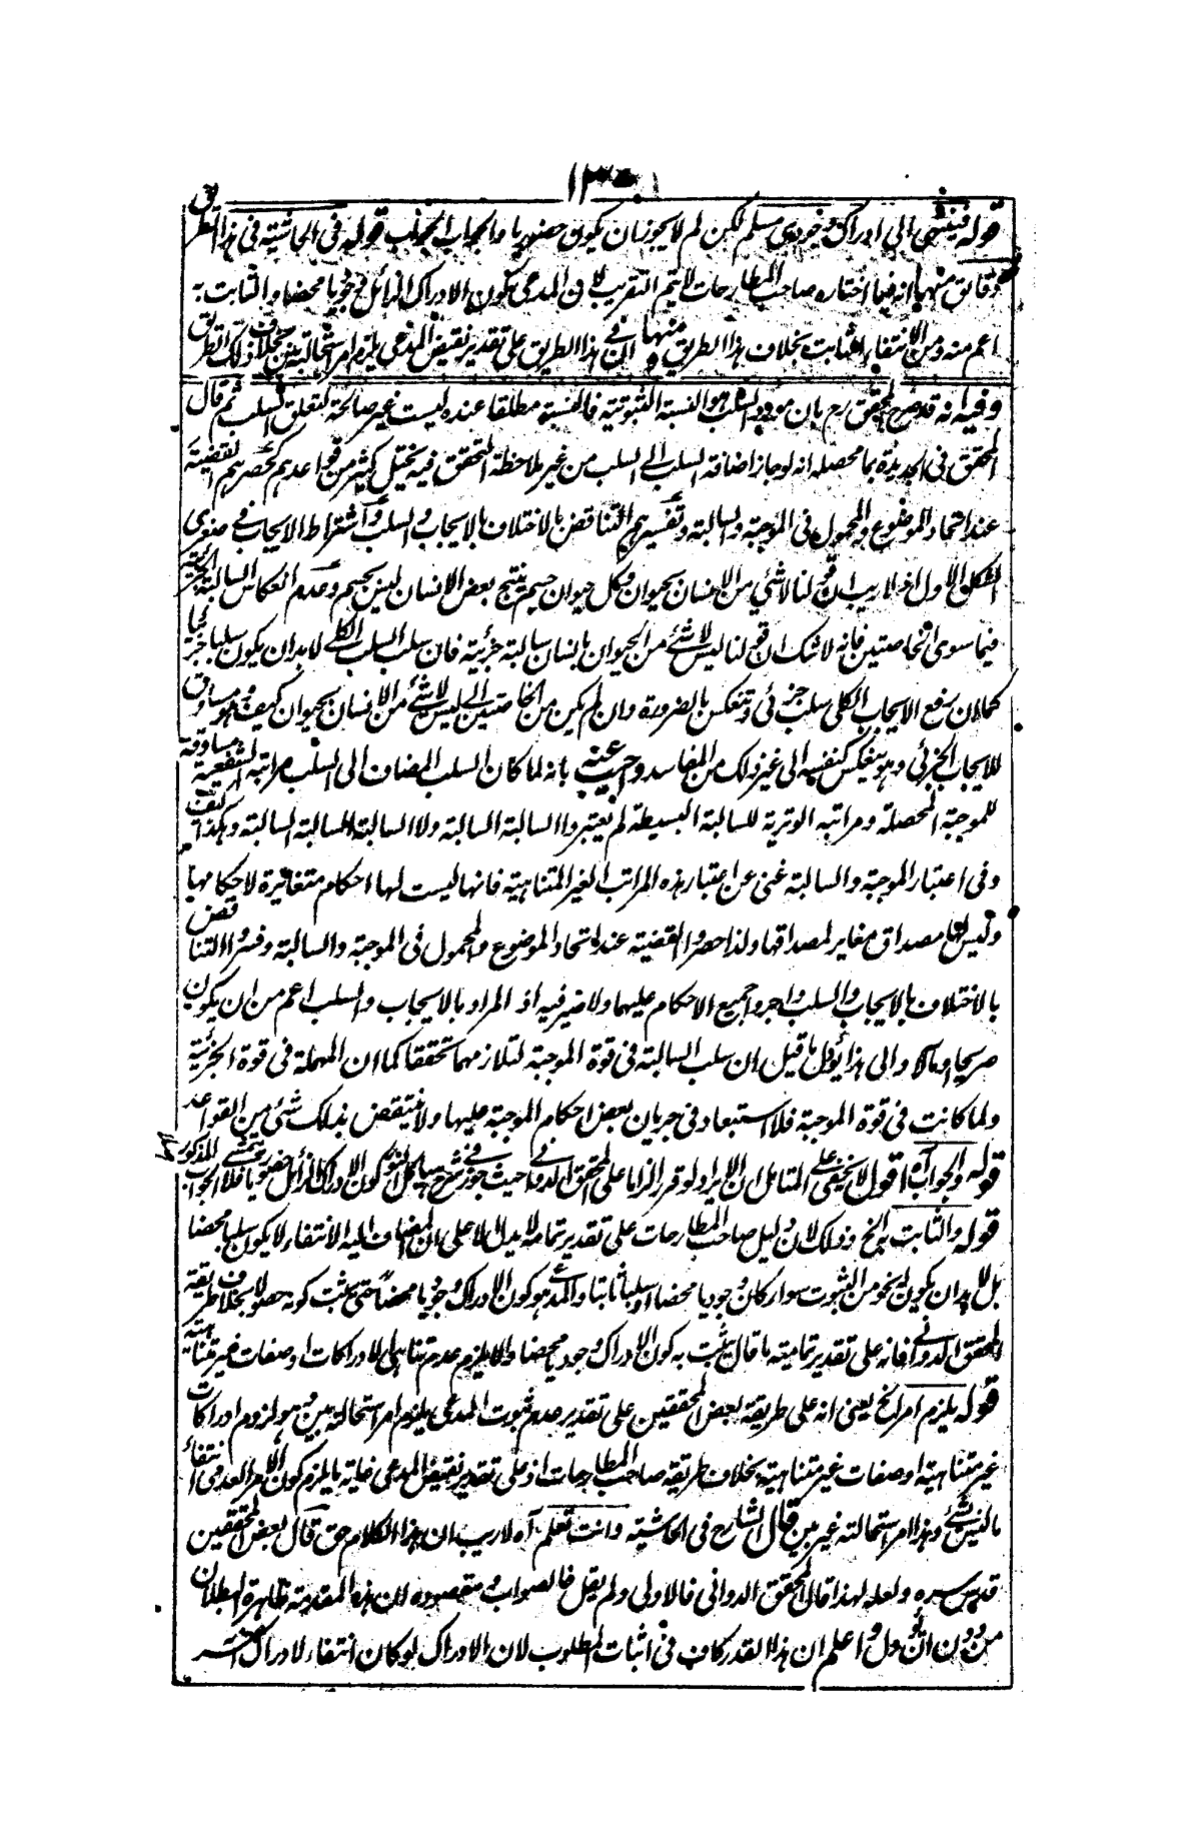 ١٣٠
قوله فينتهى الى ادراك وجودى مسلم لكن لم لا يجوز ان يكون حضوريا والجواب الجواب قوله فى الحاشية فى هذا الطريق
دقائق منها انه فيما اختاره صاحب المطارحات لا يتم التقريب لان المدعى كون الادراك الزائل وجوديا محضا والثابت به
اعم منه ومن الانتفاء الثابت بخلاف هذا الطريق ومنها ان فى هذا الطريق على تقدير نقيض المدعى يلزم امر استحالته بين بخلاف ذلك الطريق
وفيه انه قد صرح المحقق رح بان مورد السلب هو النسبة الثبوتية فالنسبة مطلقا عنده ليست غير صالحة لتعلق السلب ثم قال
المحقق فى الجديدة بما محصله انه لو جاز اضافة السلب الى السلب من غير ملاحظة التحقق فيه يختل كثير من قواعدهم كحصرهم القضية
عند اتحاد الموضوع والمحمول فى الموجبة والسالبة وتفسيرهم التناقض بالاختلاف بالايجاب والسلب واشتراط الايجاب فى صغرى
الشكل الاول اذ لا ريب ان قولنا لا شئ من الانسان بحيوان وكل حيوان جسم ينتج بعض الانسان ليس بجسم وعدم انعكاس السالبة الجزئية
فيما سوى الخاصتين فانه لا شك ان قولنا ليس لا شئ من الحيوان بانسان سالبة جزئية فان سلب السلب الكلى لا بد ان يكون سلبا جزئيا
كما ان رفع الايجاب الكلى سلب جزئى وتنعكس بالضرورة وان لم يكن من الخاصتين الى ليس لا شئ من الانسان بحيوان كيف وهو مساوق
للايجاب الجزئى وهو ينعكس كنفسه الى غير ذلك من المفاسد واجيب عنه بانه لما كان السلب المضاف الى السلب مراتبه الشفعية مساوقة
للموجبة المحصلة ومراتبه الوترية للسالبة البسيطة لم يعتبروا السالبة السالبة ولا السالبة السالبة السالبة وهكذا كيف
وفى اعتبار الموجبة والسالبة غنى عن اعتبار هذه المراتب الغير المتناهية فانها ليست لها احكام متغائرة لاحكامها
وليس لها مصداق مغاير لمصداقها ولذا حصروا القضية عند اتحاد الموضوع والمحمول فى الموجبة والسالبة وفسروا التناقض
بالاختلاف بالايجاب والسلب واجروا جميع الاحكام عليهما ولا ضير فيه اذ المراد بالايجاب والسلب اعم من ان يكون
صريحا او مآلا والى هذا يؤل ما قيل ان سلب السالبة فى قوة الموجبة لتلازمهما تحققا كما ان المهملة فى قوة الجزئية
ولما كانت فى قوة الموجبة فلا استبعاد فى جريان بعض احكام الموجبة عليها ولا ينتقض بذلك شئ من القواعد
قوله والجواب اه اقول لا يخفى على المتامل ان الايراد لو قرر الزاما على المحقق الدوانى حيث جوز فى شرح هياكل النور كون الادراك الزائل حضوريا فلا يتمشى الجواب المذكور
قوله والثابت به الخ وذلك لان دليل صاحب المطارحات على تقدير تمامه لا يدل الا على ان المضاف اليه الانتفاء لا يكون سلبا محضا
بل لا بد ان يكون له نحو من الثبوت سواء كان وجوديا محضا او سلبا ثابتا والمدعى هو كون الادراك وجوديا محضا حتى يثبت كونه حصوليا بخلاف طريقة
المحقق الدوانى فانه على تقدير تماميته ما قال يثبت به كون الادراك وجوديا محضا والا يلزم عدم تناهى الادراكات او صفات غير متناهية
قوله يلزم امر الخ يعنى انه على طريقة بعض المحققين على تقدير عدم ثبوت المدعى يلزم امر استحالته بين وهو لزوم ادراكات
غير متناهية او صفات غير متناهية بخلاف طريقة صاحب المطارحات اذ على تقدير نقيض المدعى غايته ما يلزم كون الامر العدمى انتفاء
ما ليس بشئ وهذا امر استحالته غير بين قال الشارح فى الحاشية وانت تعلم آه لا ريب ان هذا الكلام حق قال بعض المحققين
قدس سره ولعله لهذا قال المحقق الدوانى فالاولى ولم يقل فالصواب ومقصوده ان هذه المقدمة ظاهرة البطلان
من دون ان تؤول واعلم ان هذا القدر كاف فى اثبات المطلوب لان الادراك لو كان انتفاء لادراك